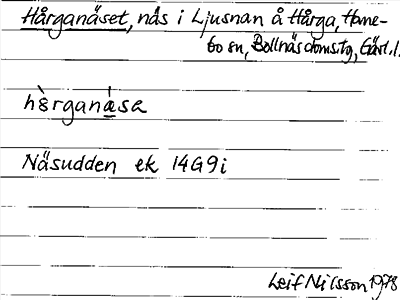 Hårganäset, näs i Ljusnan å Hårga, Hane-
bo sn, Bollnäs domsag, Gävl. l.
hȯ̀rganǻsa
Näsudden ek 14G9i
Leif Nilsson 1978